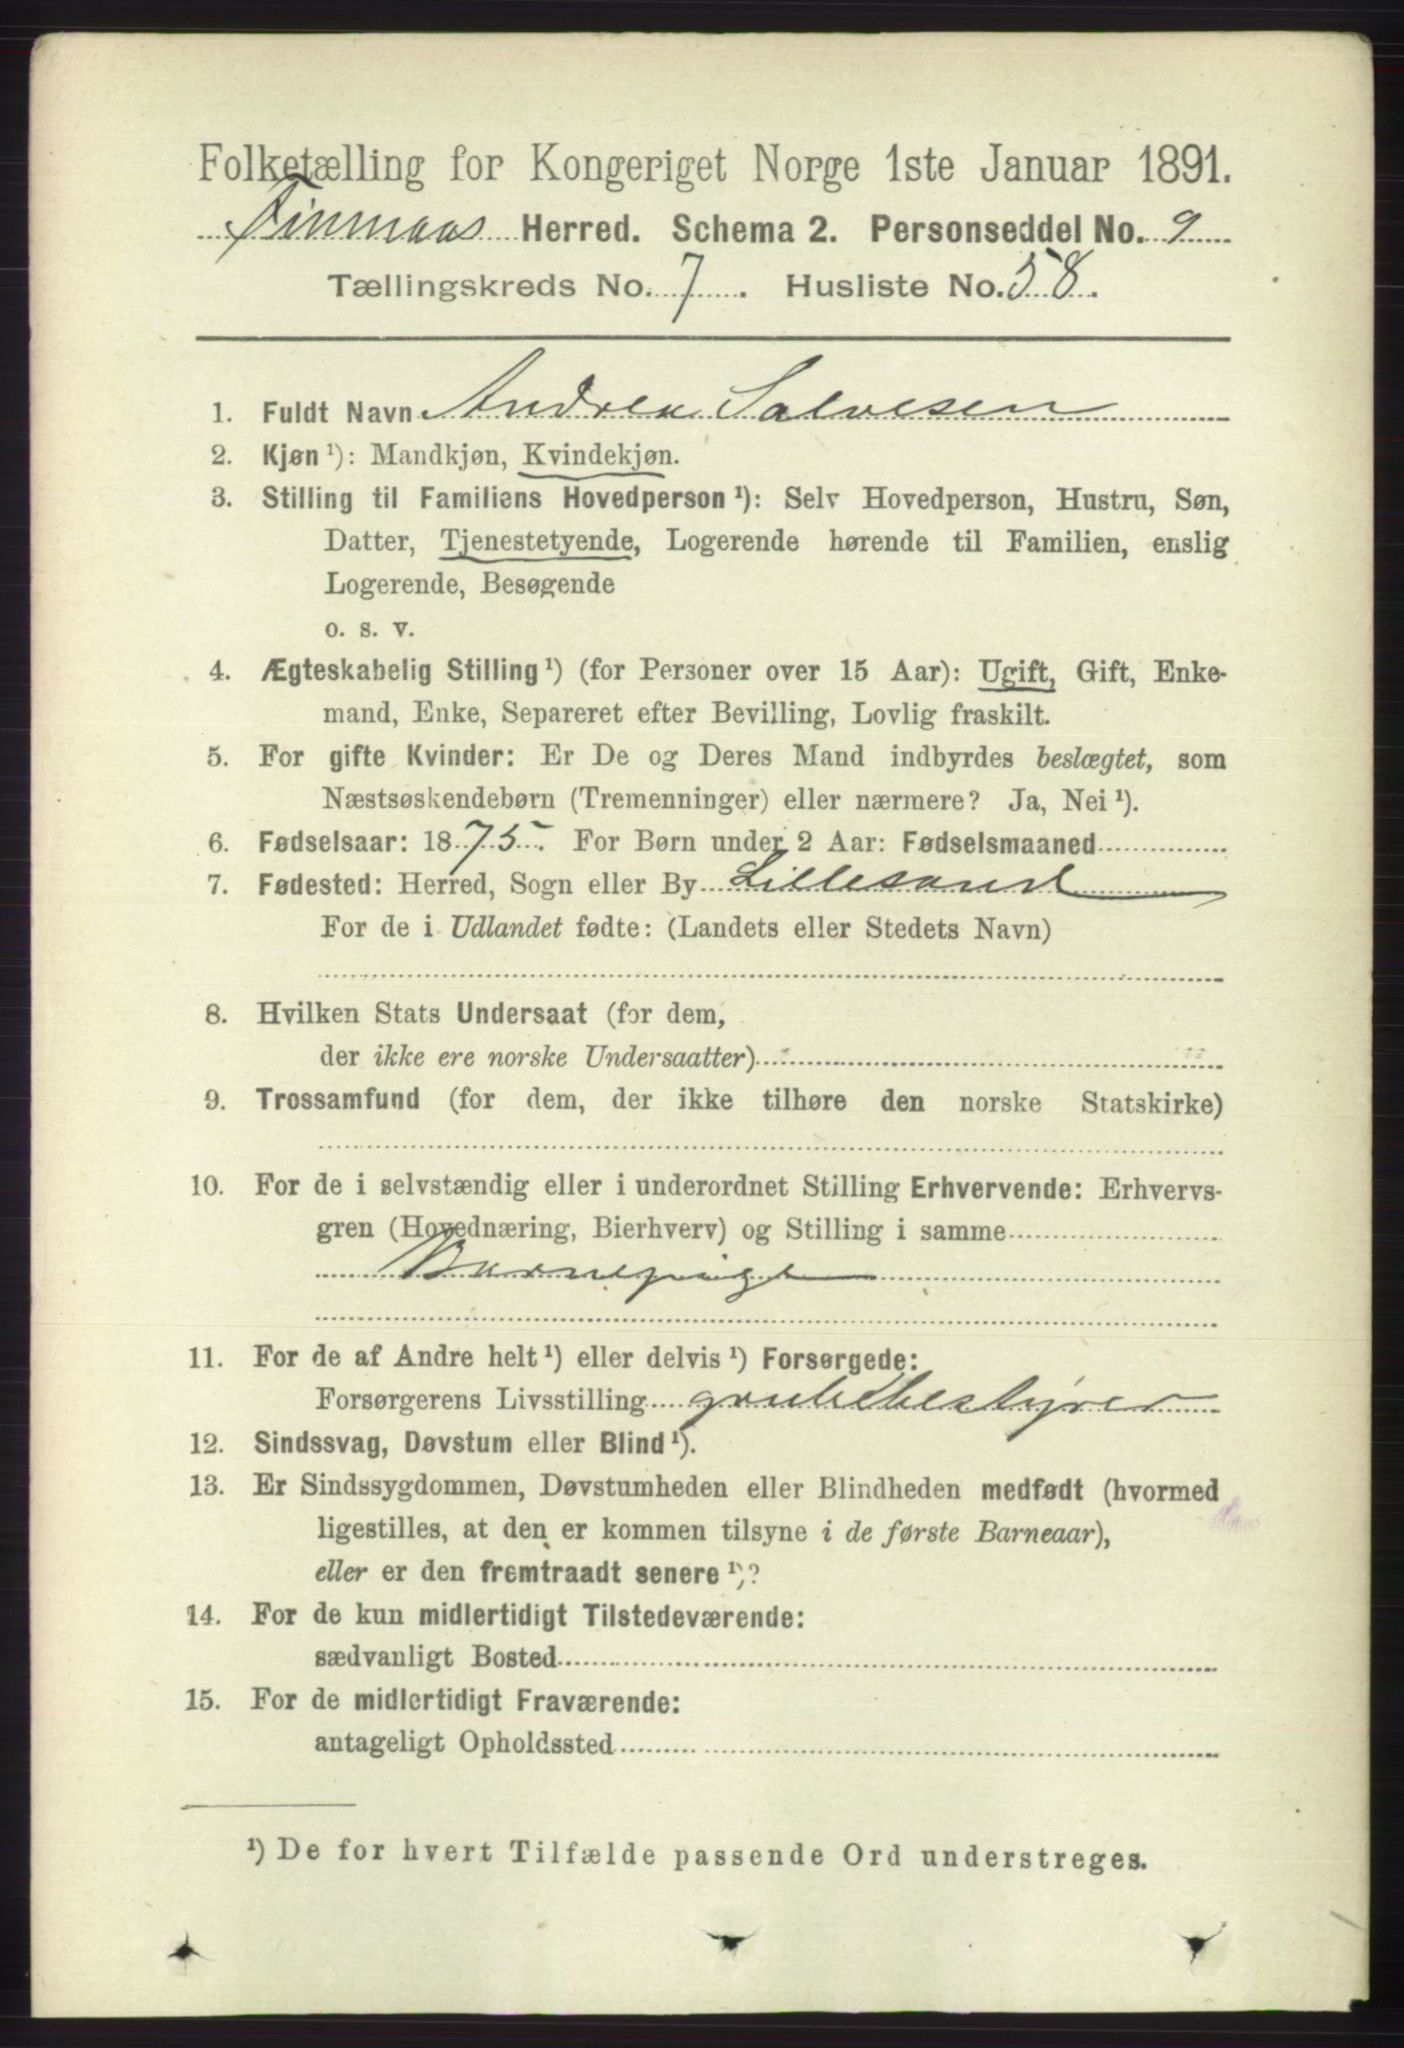 Folketælling for Kongeriget Norge 1ste Januar 1891.
Finnaas Herred. Schema 2. Personseddel No. 9
Tællingskreds No. 7. Husliste No. 58.
1. Fuldt Navn Andrea Salvesen
2. Kjøn ¹): Mandkjøn, Kvindekjøn.
3. Stilling til Familiens Hovedperson ¹): Selv Hovedperson, Hustru, Søn,
Datter, Tjenestetyende, Logerende hørende til Familien, enslig
Logerende, Besøgende
o. s. v.
4. Ægteskabelig Stilling ¹) (for Personer over 15 Aar): Ugift, Gift, Enke-
mand, Enke, Separeret efter Bevilling, Lovlig fraskilt.
5. For gifte Kvinder: Er De og Deres Mand indbyrdes beslægtet, som
Næstsøskendebørn (Tremenninger) eller nærmere? Ja, Nei ¹).
6. Fødselsaar: 1875. For Børn under 2 Aar: Fødselsmaaned
7. Fødested: Herred, Sogn eller By Lillesand
For de i Udlandet fødte: (Landets eller Stedets Navn)
8. Hvilken Stats Undersaat (for dem,
der ikke ere norske Undersaatter)
9. Trossamfund (for dem, der ikke tilhøre den norske Statskirke)
10. For de i selvstændig eller i underordnet Stilling Erhvervende: Erhvervs-
gren (Hovednæring, Bierhverv) og Stilling i samme
Barnepige
11. For de af Andre helt ¹) eller delvis ¹) Forsørgede:
Forsørgerens Livsstilling grubebestyrer
12. Sindssvag, Døvstum eller Blind ¹).
13. Er Sindssygdommen, Døvstumheden eller Blindheden medfødt (hvormed
ligestilles, at den er kommen tilsyne i de første Barneaar),
eller er den fremtraadt senere ¹)?
14. For de kun midlertidigt Tilstedeværende:
sædvanligt Bosted
15. For de midlertidigt Fraværende:
antageligt Opholdssted
¹) De for hvert Tilfælde passende Ord understreges.